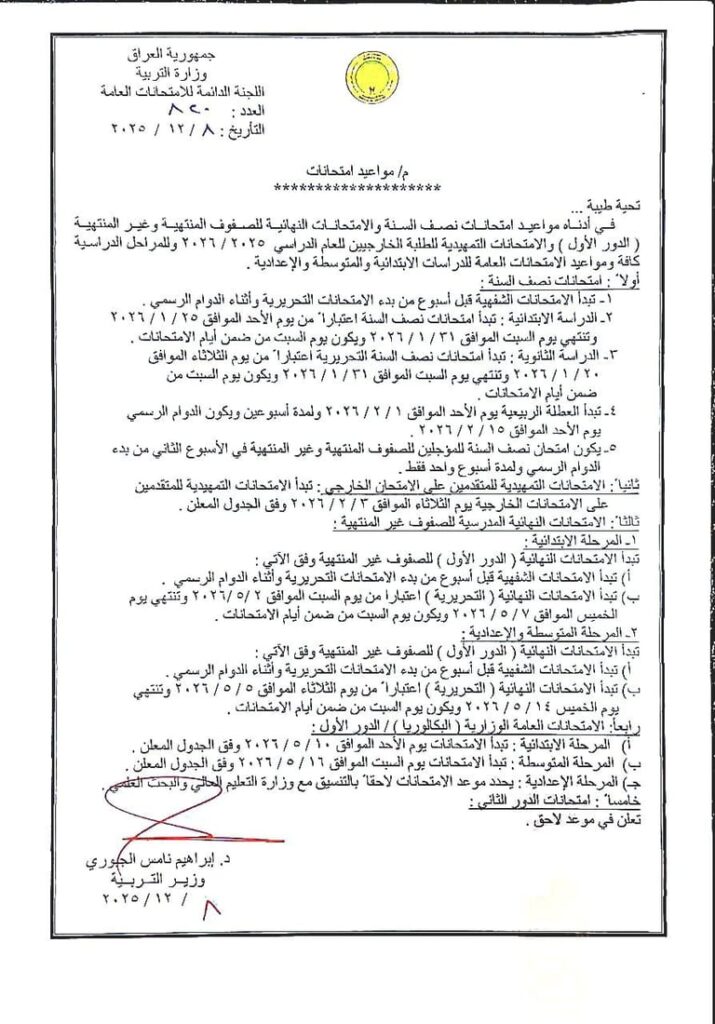 جمهورية العراق
وزارة التربية
اللجنة الدائمة للامتحانات العامة
العدد : ٨٢٠
التأريخ : ٨ / ١٢ / ٢٠٢٥
م/ مواعيد امتحانات
********************
تحية طيبة ...
في أدناه مواعيد امتحانات نصف السنة والامتحانات النهائية للصفوف المنتهية وغير المنتهية
( الدور الأول ) والامتحانات التمهيدية للطلبة الخارجيين للعام الدراسي ٢٠٢٥ / ٢٠٢٦ وللمراحل الدراسية
كافة ومواعيد الامتحانات العامة للدراسات الابتدائية والمتوسطة والإعدادية .
أولاً : امتحانات نصف السنة :
١- تبدأ الامتحانات الشفهية قبل أسبوع من بدء الامتحانات التحريرية وأثناء الدوام الرسمي .
٢- الدراسة الابتدائية : تبدأ امتحانات نصف السنة اعتباراً من يوم الأحد الموافق ٢٥ / ١ / ٢٠٢٦
وتنتهي يوم السبت الموافق ٣١ / ١ / ٢٠٢٦ ويكون يوم السبت من ضمن أيام الامتحانات .
٣- الدراسة الثانوية : تبدأ امتحانات نصف السنة التحريرية اعتباراً من يوم الثلاثاء الموافق
٢٠ / ١ / ٢٠٢٦ وتنتهي يوم السبت الموافق ٣١ / ١ / ٢٠٢٦ ويكون يوم السبت من
ضمن أيام الامتحانات .
٤- تبدأ العطلة الربيعية يوم الأحد الموافق ١ / ٢ / ٢٠٢٦ ولمدة أسبوعين ويكون الدوام الرسمي
يوم الأحد الموافق ١٥ / ٢ / ٢٠٢٦ .
٥- يكون امتحان نصف السنة للمؤجلين للصفوف المنتهية وغير المنتهية في الأسبوع الثاني من بدء
الدوام الرسمي ولمدة أسبوع واحد فقط .
ثانياً : الامتحانات التمهيدية للمتقدمين على الامتحان الخارجي : تبدأ الامتحانات التمهيدية للمتقدمين
على الامتحانات الخارجية يوم الثلاثاء الموافق ٣ / ٢ / ٢٠٢٦ وفق الجدول المعلن .
ثالثاً : الامتحانات النهائية المدرسية للصفوف غير المنتهية :
١- المرحلة الابتدائية :
تبدأ الامتحانات النهائية ( الدور الأول ) للصفوف غير المنتهية وفق الآتي :
أ) تبدأ الامتحانات الشفهية قبل أسبوع من بدء الامتحانات التحريرية وأثناء الدوام الرسمي .
ب) تبدأ الامتحانات النهائية ( التحريرية ) اعتبارا من يوم السبت الموافق ٢ / ٥ /٢٠٢٦ وتنتهي يوم
الخميس الموافق ٧ / ٥ / ٢٠٢٦ ويكون يوم السبت من ضمن أيام الامتحانات .
٢- المرحلة المتوسطة والإعدادية :
تبدأ الامتحانات النهائية ( الدور الأول ) للصفوف غير المنتهية وفق الآتي :
أ) تبدأ الامتحانات الشفهية قبل أسبوع من بدء الامتحانات التحريرية وأثناء الدوام الرسمي .
ب) تبدأ الامتحانات النهائية ( التحريرية ) اعتباراً من يوم الثلاثاء الموافق ٥ / ٥ / ٢٠٢٦ وتنتهي
يوم الخميس ١٤ / ٥ / ٢٠٢٦ ويكون يوم السبت من ضمن أيام الامتحانات .
رابعاً: الامتحانات العامة الوزارية ( البكالوريا ) / الدور الأول :
أ) المرحلة الابتدائية : تبدأ الامتحانات يوم الأحد الموافق ١٠ / ٥ / ٢٠٢٦ وفق الجدول المعلن .
ب) المرحلة المتوسطة : تبدأ الامتحانات يوم السبت الموافق ١٦ / ٥ / ٢٠٢٦ وفق الجدول المعلن .
جـ) المرحلة الإعدادية : يحدد موعد الامتحانات لاحقاً بالتنسيق مع وزارة التعليم العالي والبحث العلمي .
خامساً : امتحانات الدور الثاني :
تعلن في موعد لاحق .
د. إبراهيم نامس الجبوري
وزير التربية
٨ / ١٢ / ٢٠٢٥